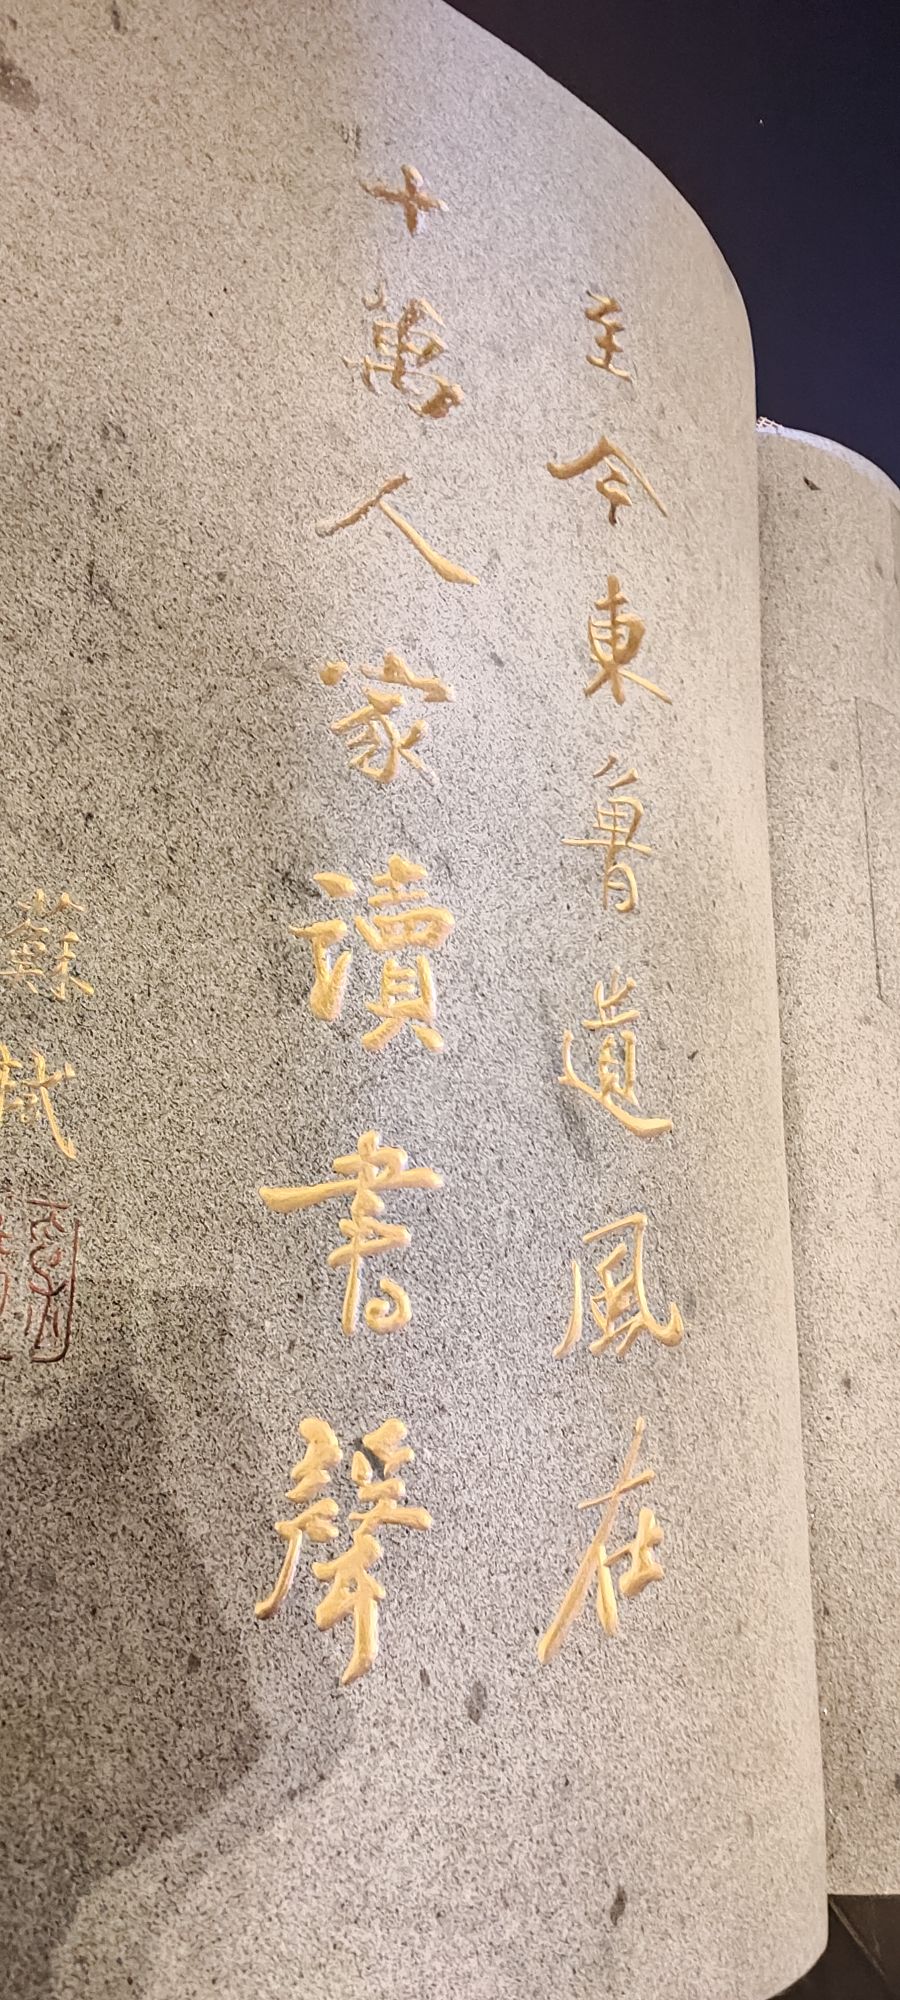 至今東魯遺風在
十萬人家讀書聲
蘇軾